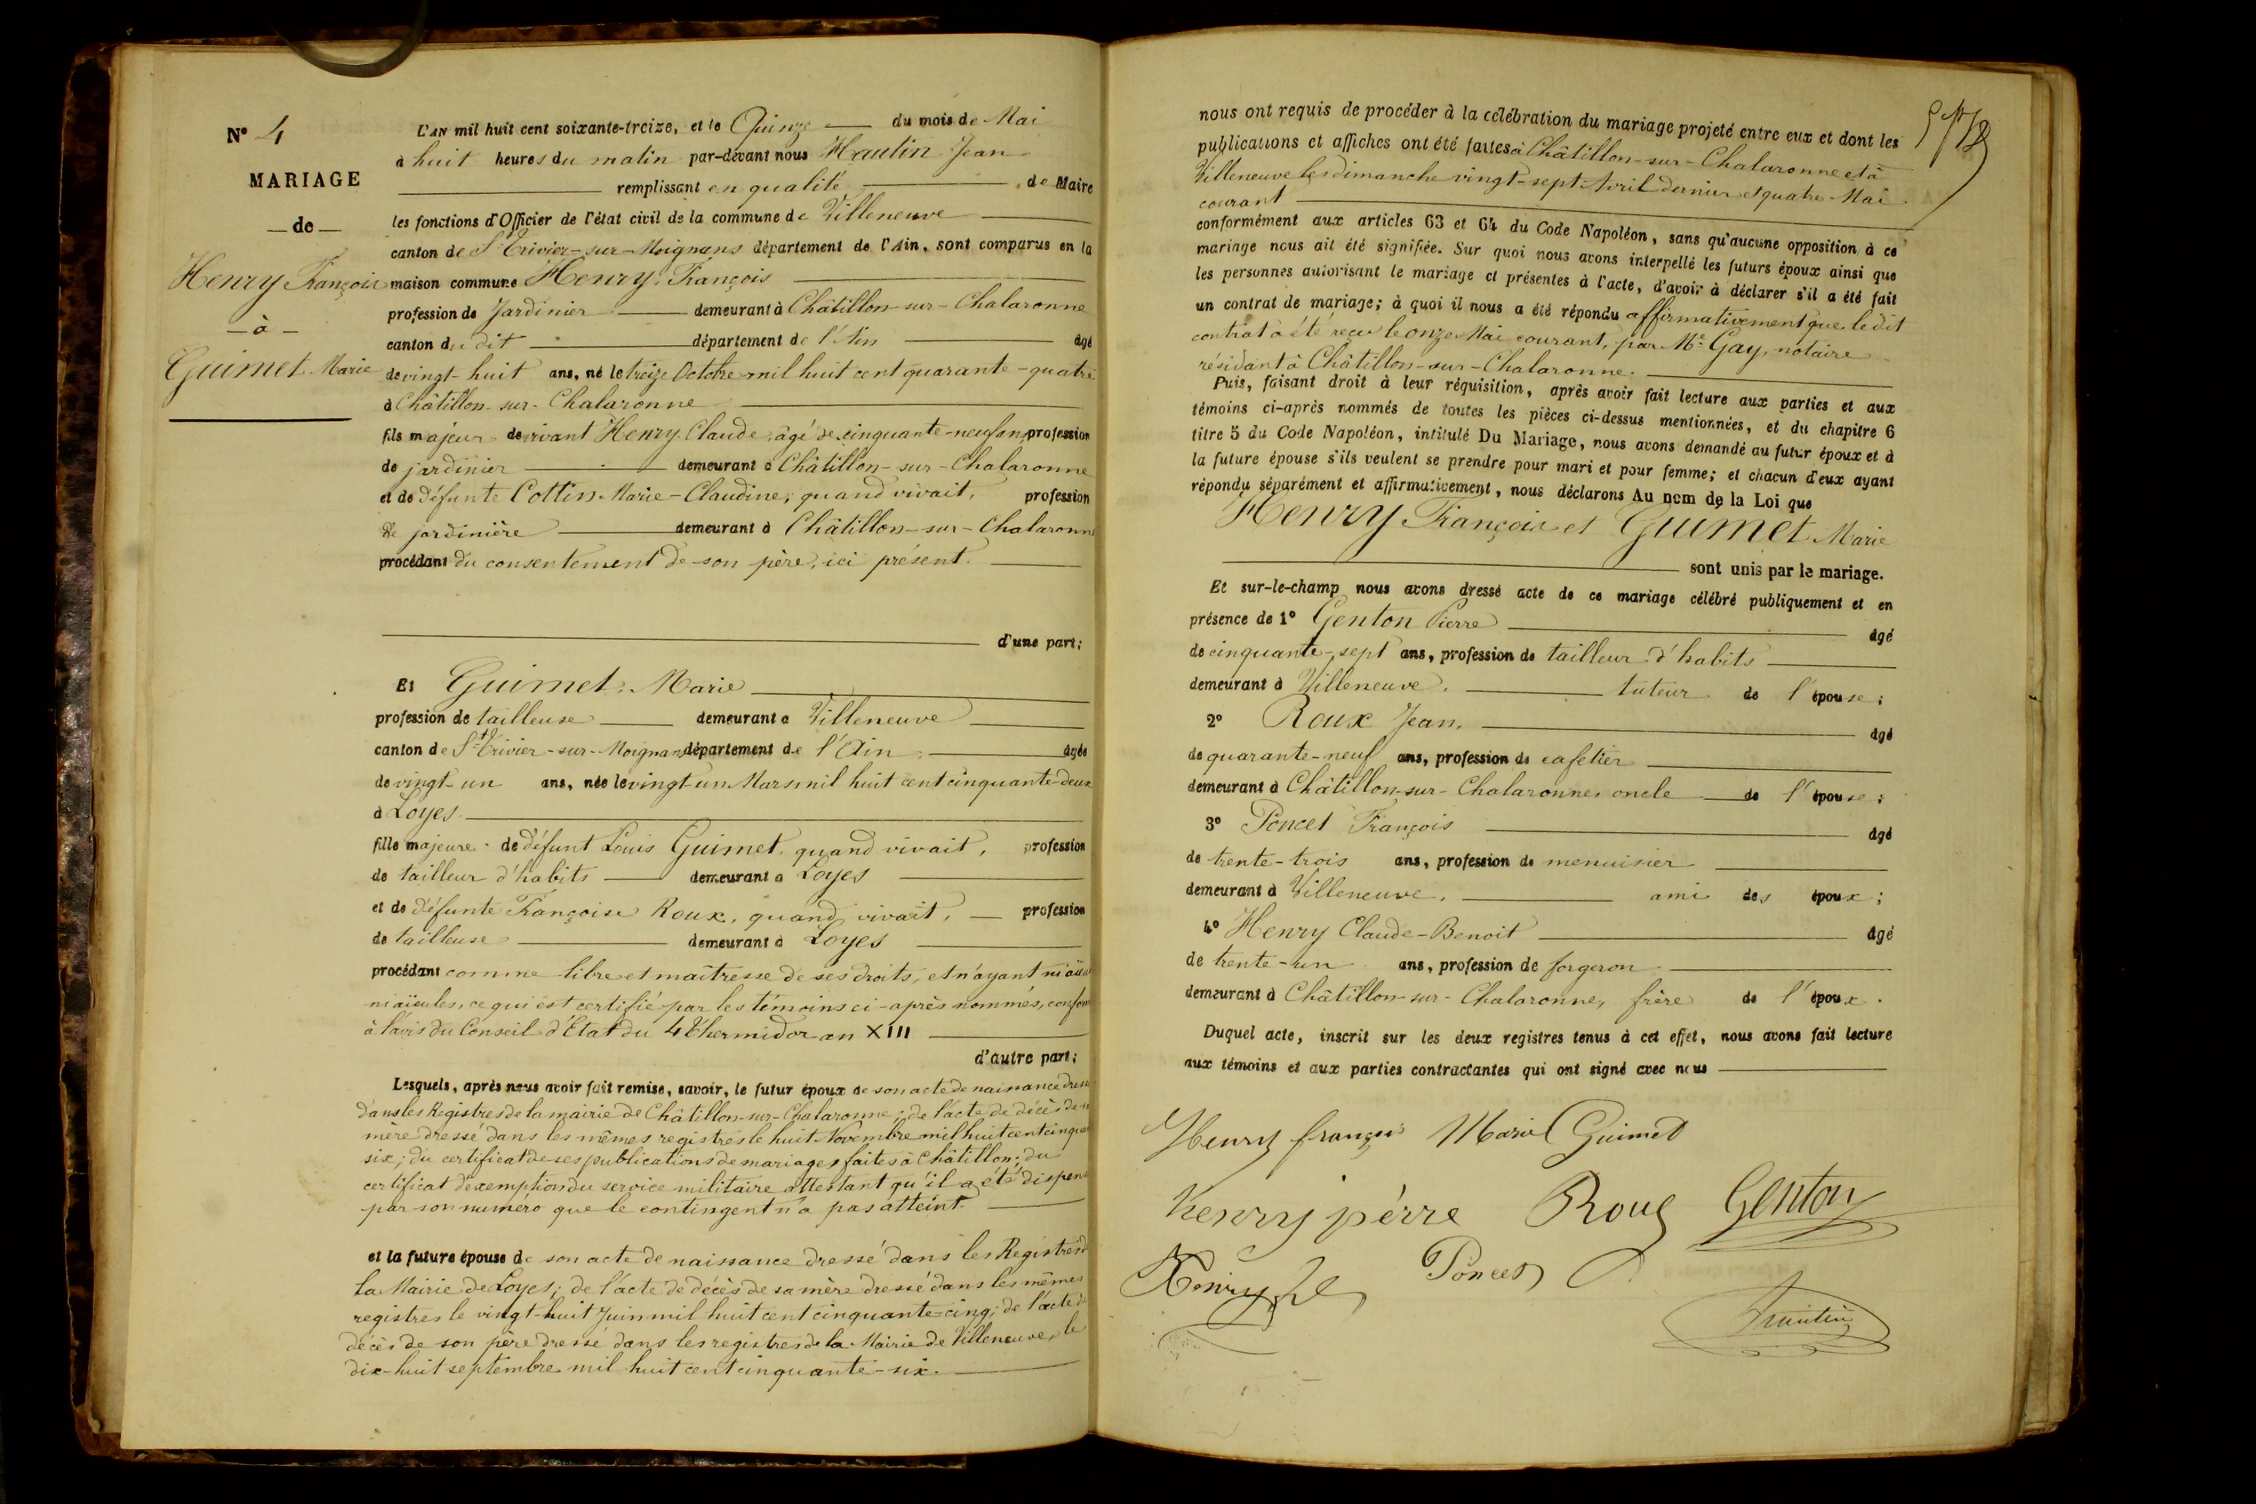 N° 4
MARIAGE
de
Henry François
à
Guimet Marie
L'AN mil huit cent soixante-treize, et le Quinze du mois de Mai
à huit heures du matin par-devant nous Jean
remplissant en qualité de Maire
les fonctions d'Officier de l'état civil de la commune de Villeneuve
canton de St Trivier-sur-Moignans département de l'Ain, sont comparus en la
maison commune Henry François
profession de Jardinier demeurant à Châtillon-sur-Chalaronne
canton du dit département de l'Ain âgé
de vingt-huit ans, né le treize Octobre mil huit cent quarante-quatre
à Châtillon-sur-Chalaronne
fils majeur de vivant Henry Claude, âgé de cinquante-neuf ans profession
de jardinier demeurant à Châtillon-sur-Chalaronne
et de défunte Cottin Marie-Claudine, quand vivait, profession
de jardinière demeurant à Châtillon-sur-Chalaronne
procédant du consentement de son père, ici présent.
d'une part;
Et Guimet Marie
profession de tailleuse demeurant à Villeneuve
canton de St Trivier-sur-Moignans département de l'Ain âgée
de vingt-un ans, née le vingt-un Mars mil huit cent cinquante-deux
à Loyes
fille majeure de défunt Louis Guimet quand vivait, profession
de tailleur d'habits demeurant à Loyes
et de défunte Françoise Roux, quand vivait, profession
de tailleuse demeurant à Loyes
procédant comme libre et maîtresse de ses droits, et n'ayant ni
ni aïeules, ce qui est certifié par les témoins ci-après nommés,
à l'avis du Conseil d'Etat du 4 Thermidor an XIII
d'autre part;
Lesquels, après nous avoir fait remise, savoir, le futur époux de son acte de naissance
dans les Registres de la mairie de Châtillon-sur-Chalaronne; de l'acte de décès de
mère dressé dans les mêmes registres le huit Novembre mil huit cent
six; du certificat de ses publications de mariages faites à Châtillon; du
certificat d'exemption du service militaire attestant qu'il a été
par son numéro que le contingent n'a pas atteint.
et la future épouse de son acte de naissance dressé dans les Registres
la Mairie de Loyes; de l'acte de décès de sa mère dressé dans les mêmes
registres le vingt-huit Juin mil huit cent cinquante-cinq; de l'acte de
décès de son père dressé dans les registres de la Mairie de Villeneuve, le
dix-huit septembre mil huit cent cinquante-six.
nous ont requis de procéder à la célébration du mariage projeté entre eux et dont les
publications et affiches ont été faites à Châtillon-sur-Chalaronne et à
Villeneuve les dimanche vingt-sept Avril dernier et quatre Mai
courant
conformément aux articles 63 et 64 du Code Napoléon, sans qu'aucune opposition à ce
mariage nous ait été signifiée. Sur quoi nous avons interpellé les futurs époux ainsi que
les personnes autorisant le mariage et présentes à l'acte, d'avoir à déclarer s'il a été fait
un contrat de mariage; à quoi il nous a été répondu affirmativement que le dit
contrat a été reçu le onze Mai courant, par Me Gay, notaire
résidant à Châtillon-sur-Chalaronne.
Puis, faisant droit à leur réquisition, après avoir fait lecture aux parties et aux
témoins ci-après nommés de toutes les pièces ci-dessus mentionnées, et du chapitre 6
titre 5 du Code Napoléon, intitulé Du Mariage, nous avons demandé au futur époux et à
la future épouse s'ils veulent se prendre pour mari et pour femme; et chacun d'eux ayant
répondu séparément et affirmativement, nous déclarons Au nom de la Loi que
Henry François et Guimet Marie
sont unis par le mariage.
Et sur-le-champ nous avons dressé acte de ce mariage célébré publiquement et en
présence de 1° Genton Pierre âgé
de cinquante-sept ans, profession de tailleur d'habits
demeurant à Villeneuve, tuteur de l'épouse;
2° Roux Jean, âgé
de quarante-neuf ans, profession de cafetier
demeurant à Châtillon-sur-Chalaronne, oncle de l'épouse;
3° Poncet François âgé
de trente-trois ans, profession de menuisier
demeurant à Villeneuve, ami des époux;
4° Henry Claude-Benoit âgé
de trente-un ans, profession de forgeron
demeurant à Châtillon-sur-Chalaronne, frère de l'époux.
Duquel acte, inscrit sur les deux registres tenus à cet effet, nous avons fait lecture
aux témoins et aux parties contractantes qui ont signé avec nous
Henry françois Marie Guimet
henry pérre Roux Genton
Henry Poncet